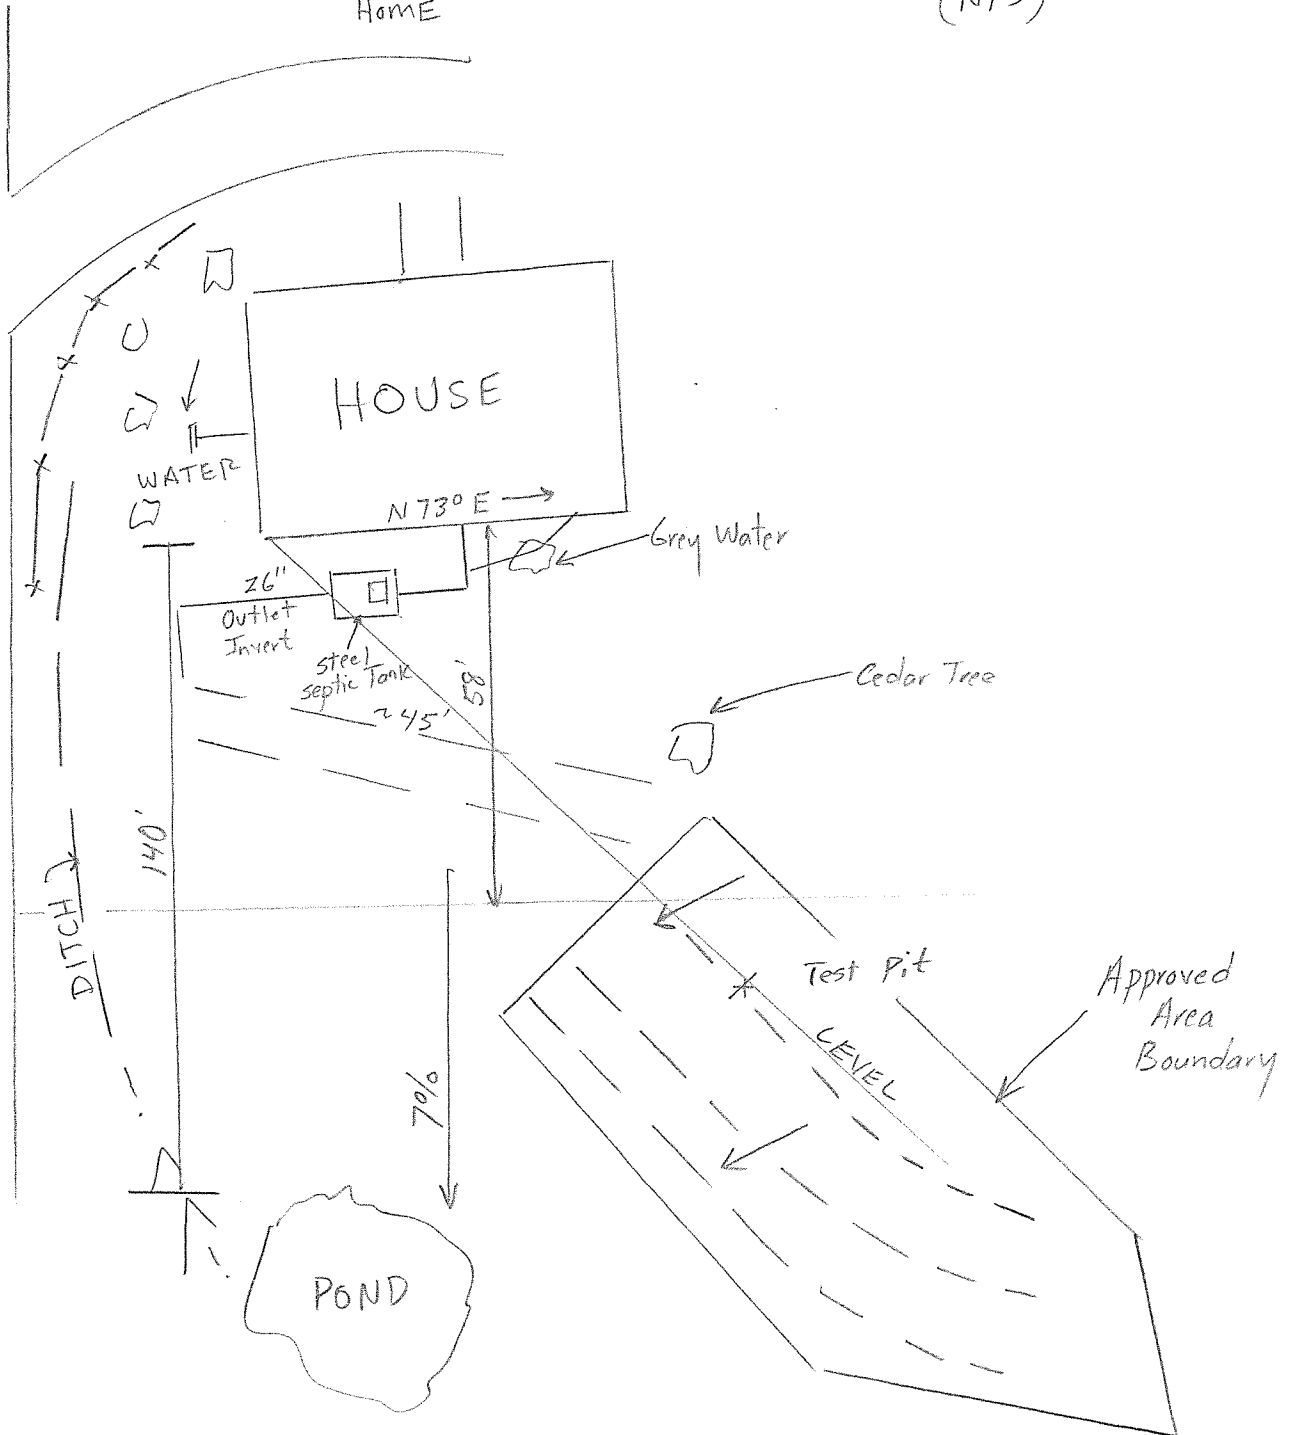 HomE
(NTS)
HOUSE
WATER
N 73° E
Grey Water
26"
Outlet
Invert
steel
septic Tank
58'
~45'
Cedar Tree
140'
DITCH
Test Pit
Approved
Area
Boundary
LEVEL
7%
POND